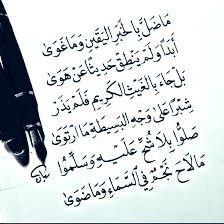 مَا ضَلَّ بِالخَبَرِ اليَقِينِ وَمَا غَوَى
أَبَدًا وَلَمْ يَنْطِقْ حَدِيثًا عَنْ هَوَى
بَلْ جَاءَ بِالغَيْثِ الكَرِيمِ فَلَمْ يَذَرْ
شِبْرًا عَلَى وَجْهِ البَسِيطَةِ مَا ارْتَوَى
صَلُّوا بِلَا شُحٍّ عَلَيْهِ وَسَلِّمُوا
مَا لَاحَ نَجْمٌ فِي السَّمَاءِ وَمَا ضَوَى